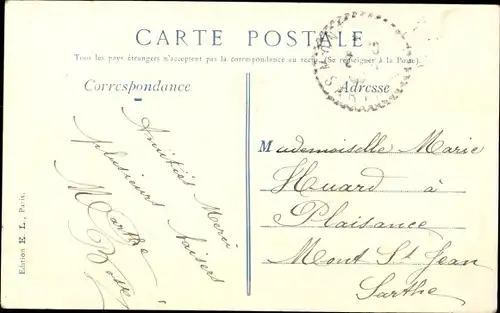 CARTE POSTALE
Tous les pays étrangers n'acceptent pas la correspondance au recto (Se renseigner à la Poste).
Correspondance
Adresse
Amitiés Merci
plusieurs baisers
Marthe
Mademoiselle Marie
Huard à
Plaisance
Mont St Jean
Sarthe
Edition E. L., Paris.